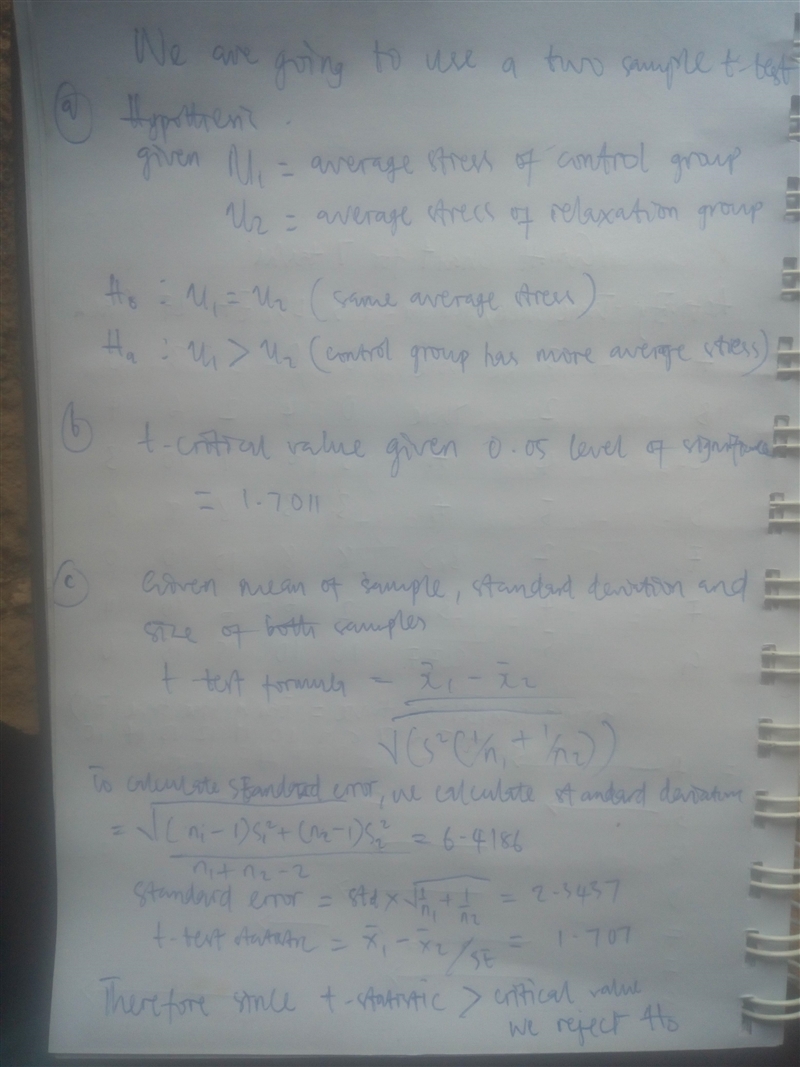 We are going to use a two sample t-test
a) Hypothesis.
given U₁ = average stress of control group
U₂ = average stress of relaxation group
H₀ : U₁ = U₂ (same average stress)
Hₐ : U₁ > U₂ (control group has more average stress)
b) t-critical value given 0.05 level of significance
= 1.7011
c) Given mean of sample, standard deviation and
size of both samples
t test formula = x̄₁ - x̄₂
√(S²(1/n₁ + 1/n₂))
To calculate standard error, we calculate standard deviation
= √(n₁-1)S₁² + (n₂-1)S₂² = 6.4186
n₁ + n₂ - 2
Standard error = std × √1/n₁ + 1/n₂ = 2.3437
t-test statistic = x̄₁ - x̄₂/SE = 1.707
Therefore since t-statistic > critical value
we reject H₀